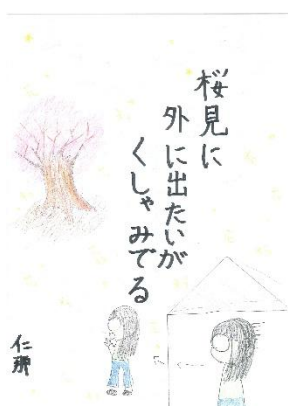 桜見に
外に出たいが
くしゃみでる